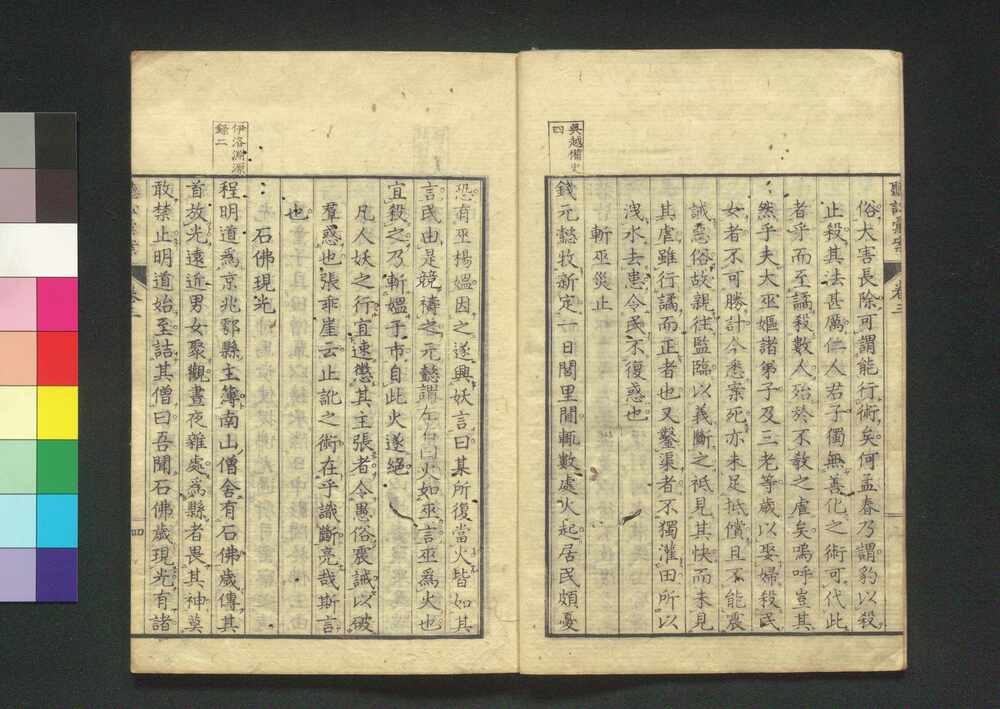 俗大害長除可謂能行術矣何孟春乃謂豹以殺
止殺其法甚厲仁人君子獨無善化之術可代此
者乎而至譎殺數人殆於不教之虐矣嗚呼豈其
然乎夫大巫嫗諸弟子及三老等歲以娶婦殺民
女者不可勝計今悉案死亦未足抵償且不能震
誡惡俗故親往監臨以義斷之祗見其快而未見
其虐雖行譎而正者也又鑿渠者不獨灌田所以
洩水去患令民不復惑也
斬巫災止
吳越備史
四
錢元懿牧新定一日閭里間輒數處火起居民頗憂
恐有巫楊媼因之遂興妖言曰某所復當火皆如其
言民由是競禱之元懿謂左右曰火如巫言巫爲火也
宜殺之乃斬媼于市自此火遂絕
凡人妖之行宜速懲其主張者令愚俗震誡以破
羣惑也張乖崖云止訛之術在乎識斷亮哉斯言
也
石佛現光
伊洛淵源
錄二
程明道爲京兆鄠縣主簿南山僧舍有石佛歲傳其
首放光遠近男女聚觀晝夜雜處爲縣者畏其神莫
敢禁止明道始至詰其僧曰吾聞石佛歲現光有諸
卷三
四